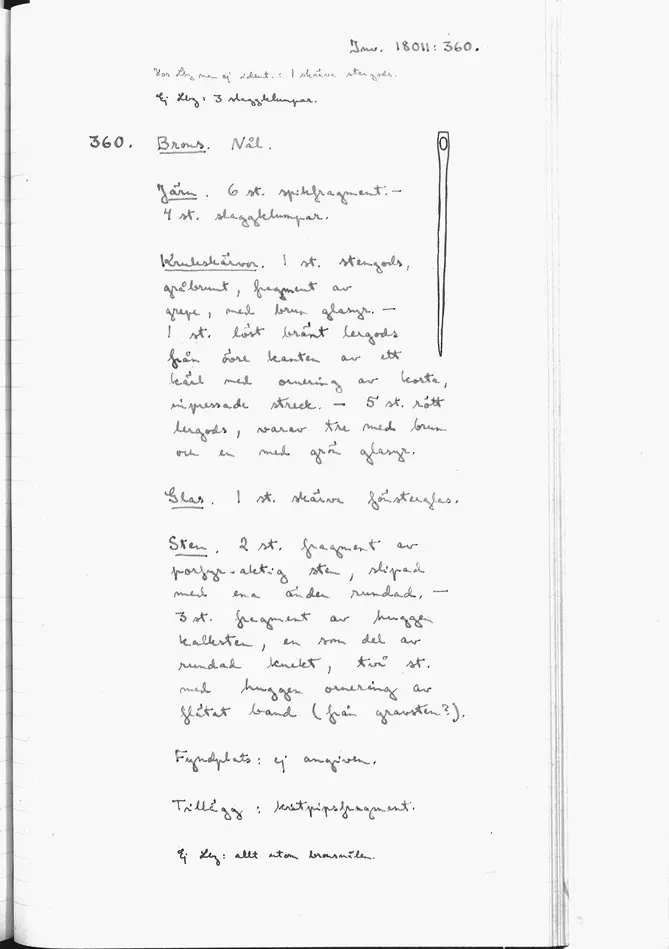 Inv. 18011:360.
Hos Lbg men ej ident.: 1 skärva stengods.
Ej Lbg: 3 slaggklumpar.
360. Brons. Nål.
Järn. 6 st. spikfragment. —
4 st. slaggklumpar.
Krukskärvor. 1 st. stengods,
gråbrunt, fragment av
grepe, med brun glasyr. —
1 st. löst bränt lergods
från övre kanten av ett
kärl med ornering av korta,
inpressade streck. — 5 st. rött
lergods, varav tre med brun
och en med grön glasyr.
Glas. 1 st. skärva fönsterglas.
Sten. 2 st. fragment av
porfyr-aktig sten, slipad
med ena änden rundad. —
3 st. fragment av huggen
kalksten, en som del av
rundad knekt, två st.
med huggen ornering av
flätat band (från gravsten?).
Fyndplats: ej angiven.
Tillägg: kritpipsfragment.
Ej Lbg: allt utom bronsnålen.